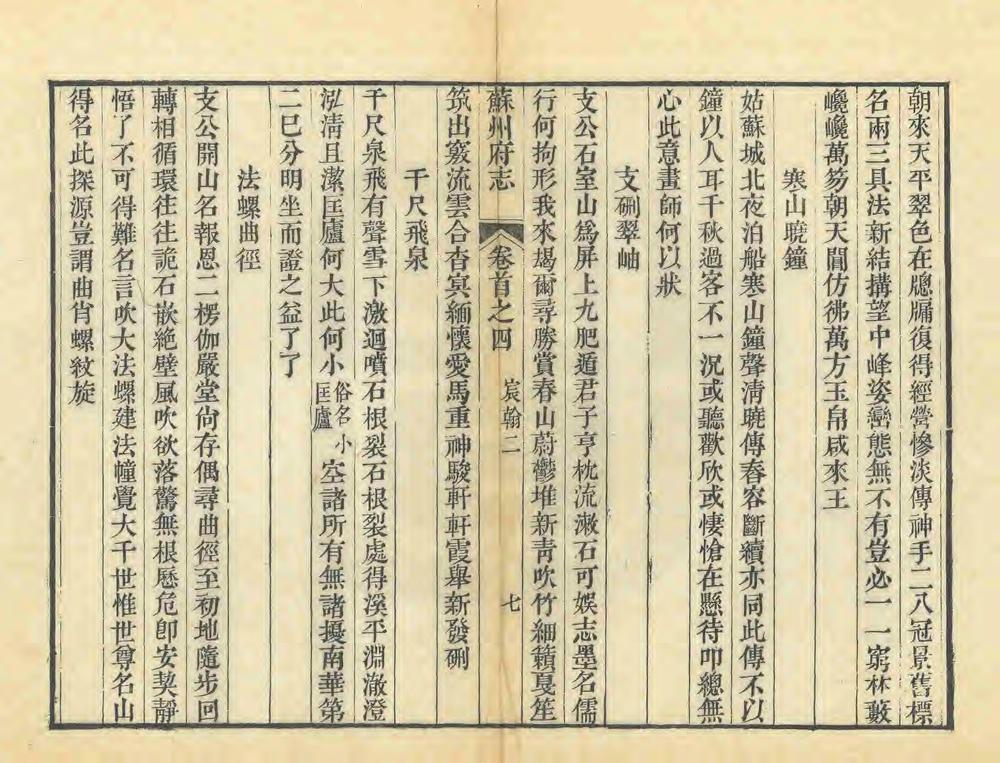 朝來天平翠色在牕牖復得經營慘淡傳神手二八冠景舊標
名兩三具法新結搆望中峰姿巒態無不有豈必一一窮林藪
巉巉萬笏朝天閶仿彿萬方玉帛咸來王
寒山曉鐘
姑蘇城北夜泊船寒山鐘聲淸曉傳舂容斷續亦同此傳不以
鐘以人耳千秋過客不一況或聽歡欣或悽愴在懸待叩總無
心此意畫師何以狀
支硎翠岫
支公石室山爲屏上九肥遁君子亨枕流漱石可娛志墨名儒
行何拘形我來朅爾尋勝賞春山蔚鬱堆新靑吹竹細籟戛笙
蘇州府志 卷首之四 宸翰二 七
筑出竅流雲合杳冥緬懷愛馬重神駿軒軒霞舉新發硎
千尺飛泉
千尺泉飛有聲雪下激迴噴石根裂石根裂處得溪平淵澈澄
泓淸且潔匡廬何大此何小俗名小匡廬空諸所有無諸擾南華第
二巳分明坐而證之益了了
法螺曲徑
支公開山名報恩二楞伽嚴堂尙存偶尋曲徑至初地隨步回
轉相循環往往詭石嵌絶壁風吹欲落驚無根懸危卽安契靜
悟了不可得難名言吹大法螺建法幢覺大千世惟世尊名山
得名此探源豈謂曲肖螺紋旋